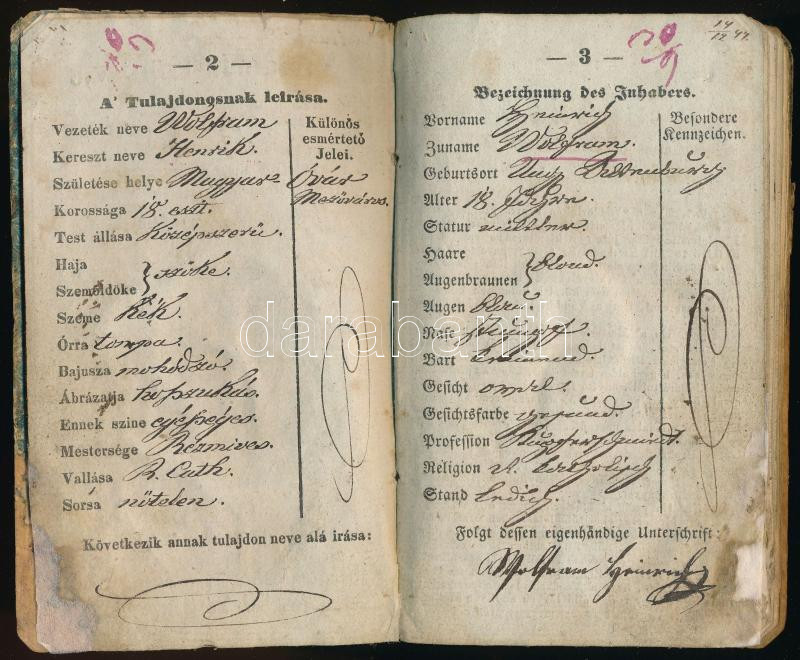 — 2 —
A' Tulajdonosnak leirása.
Vezeték neve Wolfram
Kereszt neve Henrik.
Születése helye Magyar Óvár
Mezőváros.
Korossága 18. eszt.
Test állása Középszerü
Haja
Szemöldöke } szöke.
Szeme Kék.
Órra tompa.
Bajusza mohódzó.
Ábrázatja hosszukás.
Ennek szine egésséges.
Mestersége Rézmives.
Vallása R. Cath.
Sorsa nötelen.
Különös
esmértető
Jelei.
Következik annak tulajdon neve alá irása:
14/12 47.
— 3 —
Bezeichnung des Inhabers.
Vorname Heinrich
Zuname Wolfram.
Geburtsort Ung. Altenburg
Alter 18. Jahre.
Statur mittler.
Haare
Augenbraunen } blond.
Augen blau.
Nase stumpf.
Bart keimend.
Gesicht oval.
Gesichtsfarbe gesund.
Profession Kupferschmidt.
Religion R. katholisch
Stand ledig.
Besondere
Kennzeichen.
Folgt dessen eigenhändige Unterschrift:
Wolfram Heinrich
darabanth